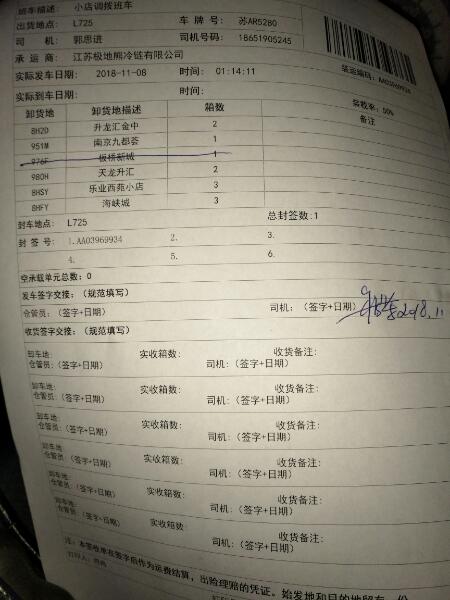 班车描述: 小店调拨班车
出货地点: L725 车牌号: 苏AR5280
司机: 郭思进 司机号码: 18651905245
承运商: 江苏极地熊冷链有限公司
实际发车日期: 2018-11-08 时间: 01:14:11 装运编码: AA03969934
实际到车日期: 时间: 装载率: 50%
卸货地 卸货地描述 箱数 备注
8H2D 升龙汇金中 2
951M 南京九都荟 1
976F 板桥新城 1
980H 天龙升汇 2
8HSY 乐业西苑小店 3
8HFY 海峡城 3
封车地点: L725 总封签数:1
封签号: 1.AA03969934 2. 3.
4. 5. 6.
空承载单元总数: 0
发车签字交接: (规范填写)
仓管员: (签字+日期) 司机: (签字+日期) 2018.11
收货签字交接: (规范填写)
卸车地: 实收箱数: 收货备注:
仓管员: (签字+日期) 司机: (签字+日期)
卸车地: 实收箱数: 收货备注:
仓管员: (签字+日期) 司机: (签字+日期)
卸车地: 实收箱数: 收货备注:
仓管员: (签字+日期) 司机: (签字+日期)
卸车地: 实收箱数: 收货备注:
仓管员: (签字+日期) 司机: (签字+日期)
卸车地: 实收箱数: 收货备注:
仓管员: (签字+日期) 司机: (签字+日期)
卸车地: 实收箱数: 收货备注:
仓管员: (签字+日期) 司机: (签字+日期)
注: 本签收单在签字后作为运费结算, 出险理赔的凭证。始发地和目的地留存一份
打印人: